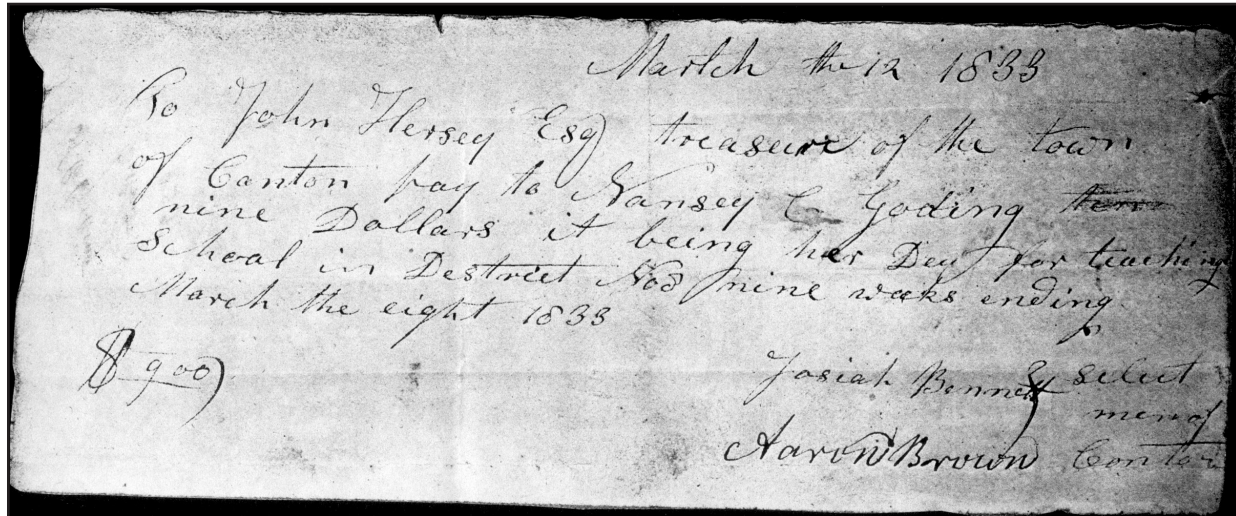 March the 12 1833
To John Hersey Esq treasure of the town
of Canton pay to Nansey C Goding
nine Dollars it being her Deu for teaching
School in Destrict No 3 nine weaks ending
March the eight 1833
$ 9 00
Josiah Bennett select
men of
Aaron Brown Canton